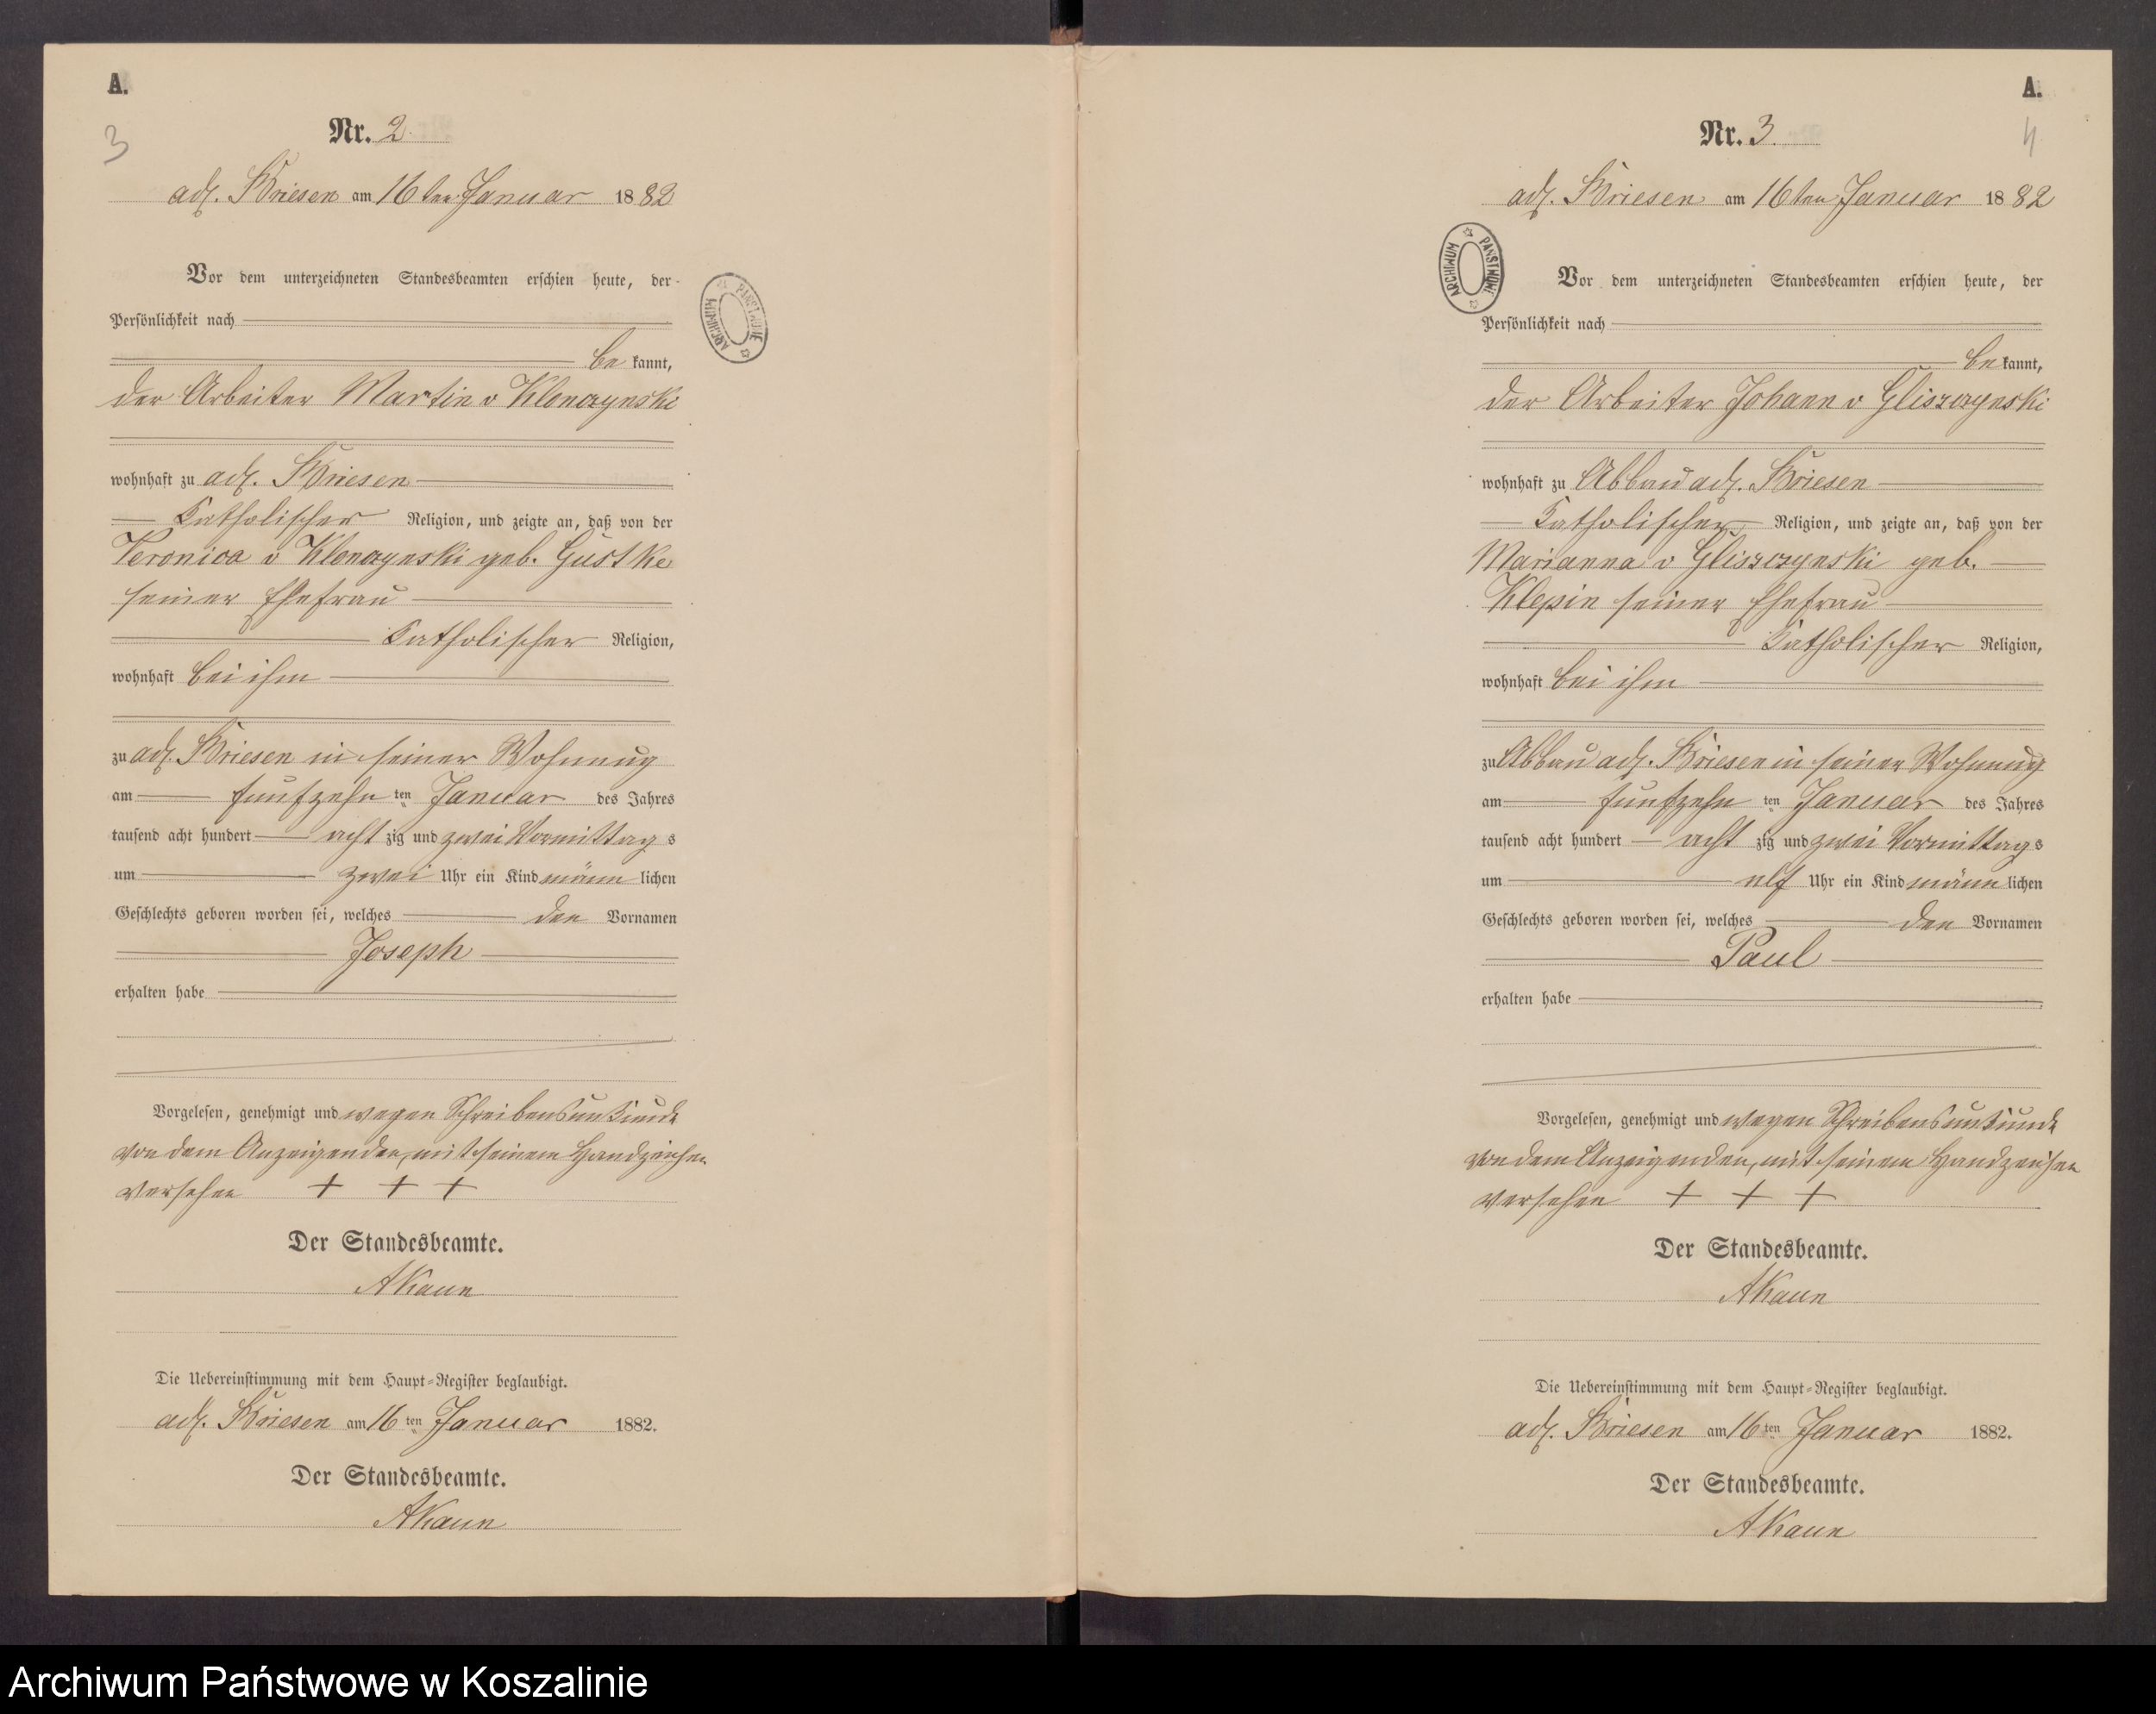 A.
3
Nr. 2.
adl. Briesen am 16ten Januar 1882
Vor dem unterzeichneten Standesbeamten erschien heute, der
Persönlichkeit nach
be kannt,
der Arbeiter Martin v Klonczynski
wohnhaft zu adl. Briesen
Katholischer Religion, und zeigte an, daß von der
Veronica v Klonczynski geb. Gustke
seiner Ehefrau
Katholischer Religion,
wohnhaft bei ihm
zu adl. Briesen in seiner Wohnung
am fünfzehn ten Januar des Jahres
tausend acht hundert acht zig und zwei Vormittag s
um zwei Uhr ein Kind männ lichen
Geschlechts geboren worden sei, welches den Vornamen
Joseph
erhalten habe
Vorgelesen, genehmigt und wegen Schreibensunkunde
von dem Anzeigenden, mit seinem Handzeichen
versehen + + +
Der Standesbeamte.
AKaun
Die Uebereinstimmung mit dem Haupt-Register beglaubigt.
adl. Briesen am 16 ten Januar 1882.
Der Standesbeamte.
AKaun
ARCHIWUM PAŃSTWOWE
A.
4
Nr. 3.
adl. Briesen am 16ten Januar 1882
ARCHIWUM PAŃSTWOWE
Vor dem unterzeichneten Standesbeamten erschien heute, der
Persönlichkeit nach
be kannt,
der Arbeiter Johann v Gliszczynski
wohnhaft zu Abbau adl. Briesen
Katholischer Religion, und zeigte an, daß von der
Marianna v Gliszczynski geb.
Klepin seiner Ehefrau
Katholischer Religion,
wohnhaft bei ihm
zu Abbau adl. Briesen in seiner Wohnung
am fünfzehn ten Januar des Jahres
tausend acht hundert acht zig und zwei Vormittag s
um elf Uhr ein Kind männ lichen
Geschlechts geboren worden sei, welches den Vornamen
Paul
erhalten habe
Vorgelesen, genehmigt und wegen Schreibensunkunde
von dem Anzeigenden, mit seinem Handzeichen
versehen + + +
Der Standesbeamte.
AKaun
Die Uebereinstimmung mit dem Haupt-Register beglaubigt.
adl. Briesen am 16 ten Januar 1882.
Der Standesbeamte.
AKaun
Archiwum Państwowe w Koszalinie